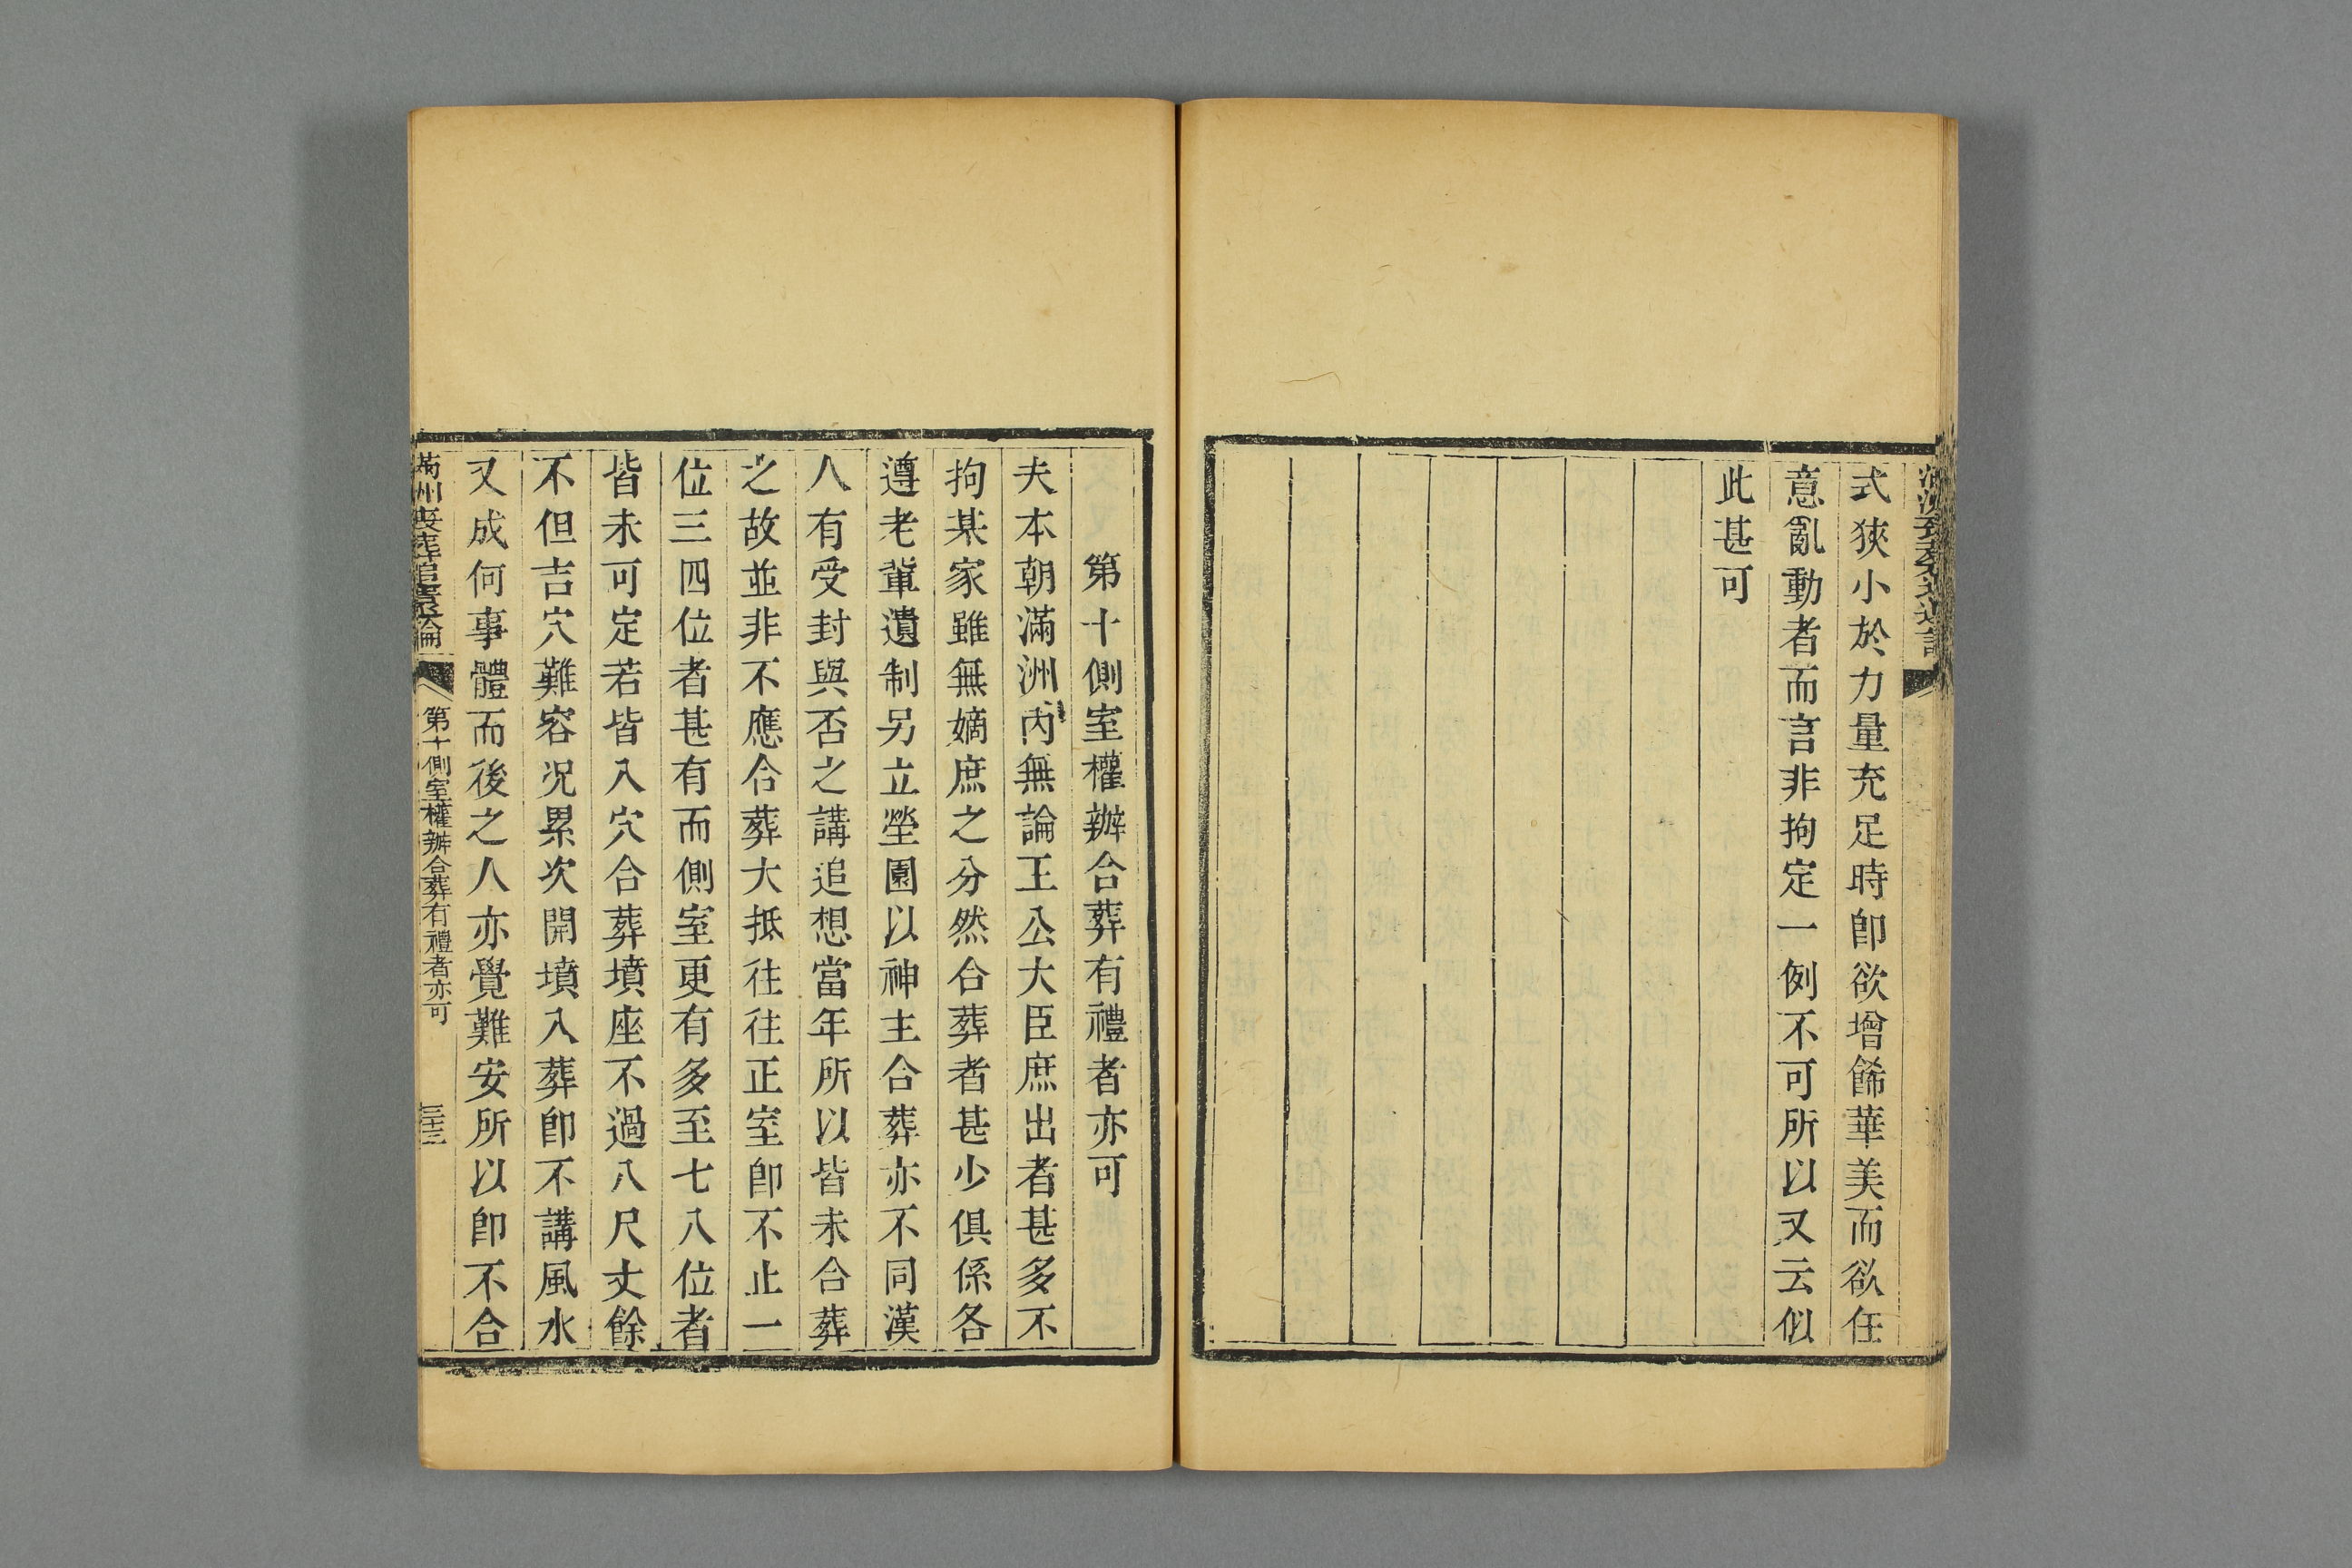 式狹小於力量充足時卽欲增餙華美而欲任
意亂動者而言非拘定一例不可所以又云似
此甚可
第十側室權辦合葬有禮者亦可
夫本朝滿洲內無論王公大臣庶出者甚多不
拘某家雖無嫡庶之分然合葬者甚少俱係各
遵老軰遺制另立塋園以神主合葬亦不同漢
人有受封與否之講追想當年所以皆未合葬
之故並非不應合葬大抵往往正室卽不止一
位三四位者甚有而側室更有多至七八位者
皆未可定若皆入穴合葬墳座不過八尺丈餘
不但吉穴難容况累次開墳入葬卽不講風水
又成何事體而後之人亦覺難安所以卽不合
滿州喪葬追遠論
第十側室權辦合葬有禮者亦可
三十三